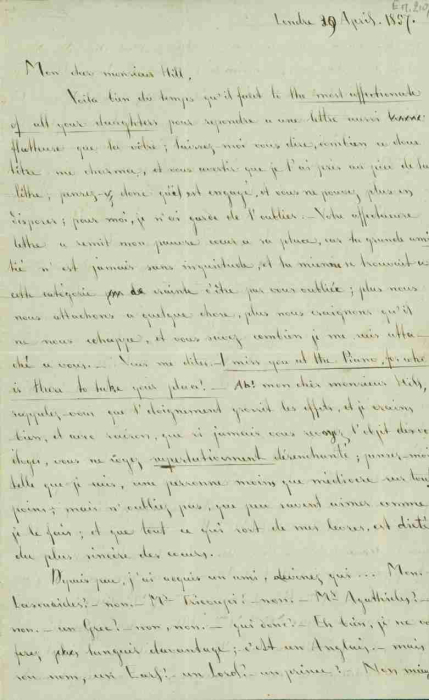 Londre 19 April. 1857.
Mon cher monsieur Hill,
Voila bien du temps qu'il falut to the most affectionate
of all your daughters pour repondre a une lettre aussi
flatteuse que la vôtre; laissez moi vous dire, combien ce doux
titre me charme, et vous avertir que je l'ai pris au pié de la
lêttre, pensez-y donc qu'il est engagé, et vous ne pouvez plus en
disposer; pour moi, je n'ai garde de l'oublier. Votre affectueuse
lettre a remit mon pauvre coeur a sa place, car la grande ami
tié n'est jamais sans inquietude, et la mienne se trouvait a
cette catégorie crainte d'être par vous oubliée; plus nous
nous attachons a quelque chose, plus nous craignons qu'il
ne nous echappe, et vous savez combien je me suis atta-
ché a vous. — Vous me dites I miss you at the Piano, for who
is there to take your place! — Ah! mon cher monsieur Hill,
rappelez-vous que l'éloignement grossit les effets, et je crains
bien, et avec raison, que si jamais vous revoyez l'objet des
éloges, vous ne soyez superlativement désenchanté; pensez-moi
telle que je suis, une personne moins que médiocre sur tous
points; mais n'oubliez pas, que peu savent aimer comme
je le fais; et que tout ce qui sort de mes levres, est dicté
du plus sincère des coeurs.
Depuis peu, j'ai acquis un ami, devinez qui... Mon.
non. — Mr. non. — Mr. Agathides? —
non. — un Grec? non, non. — qui donc? — Eh bien, je ne vous
ferez, plus languir davantage; c'est un Anglais. — mais
son nom, un Earl? un Lord? un prince? — Non mieux